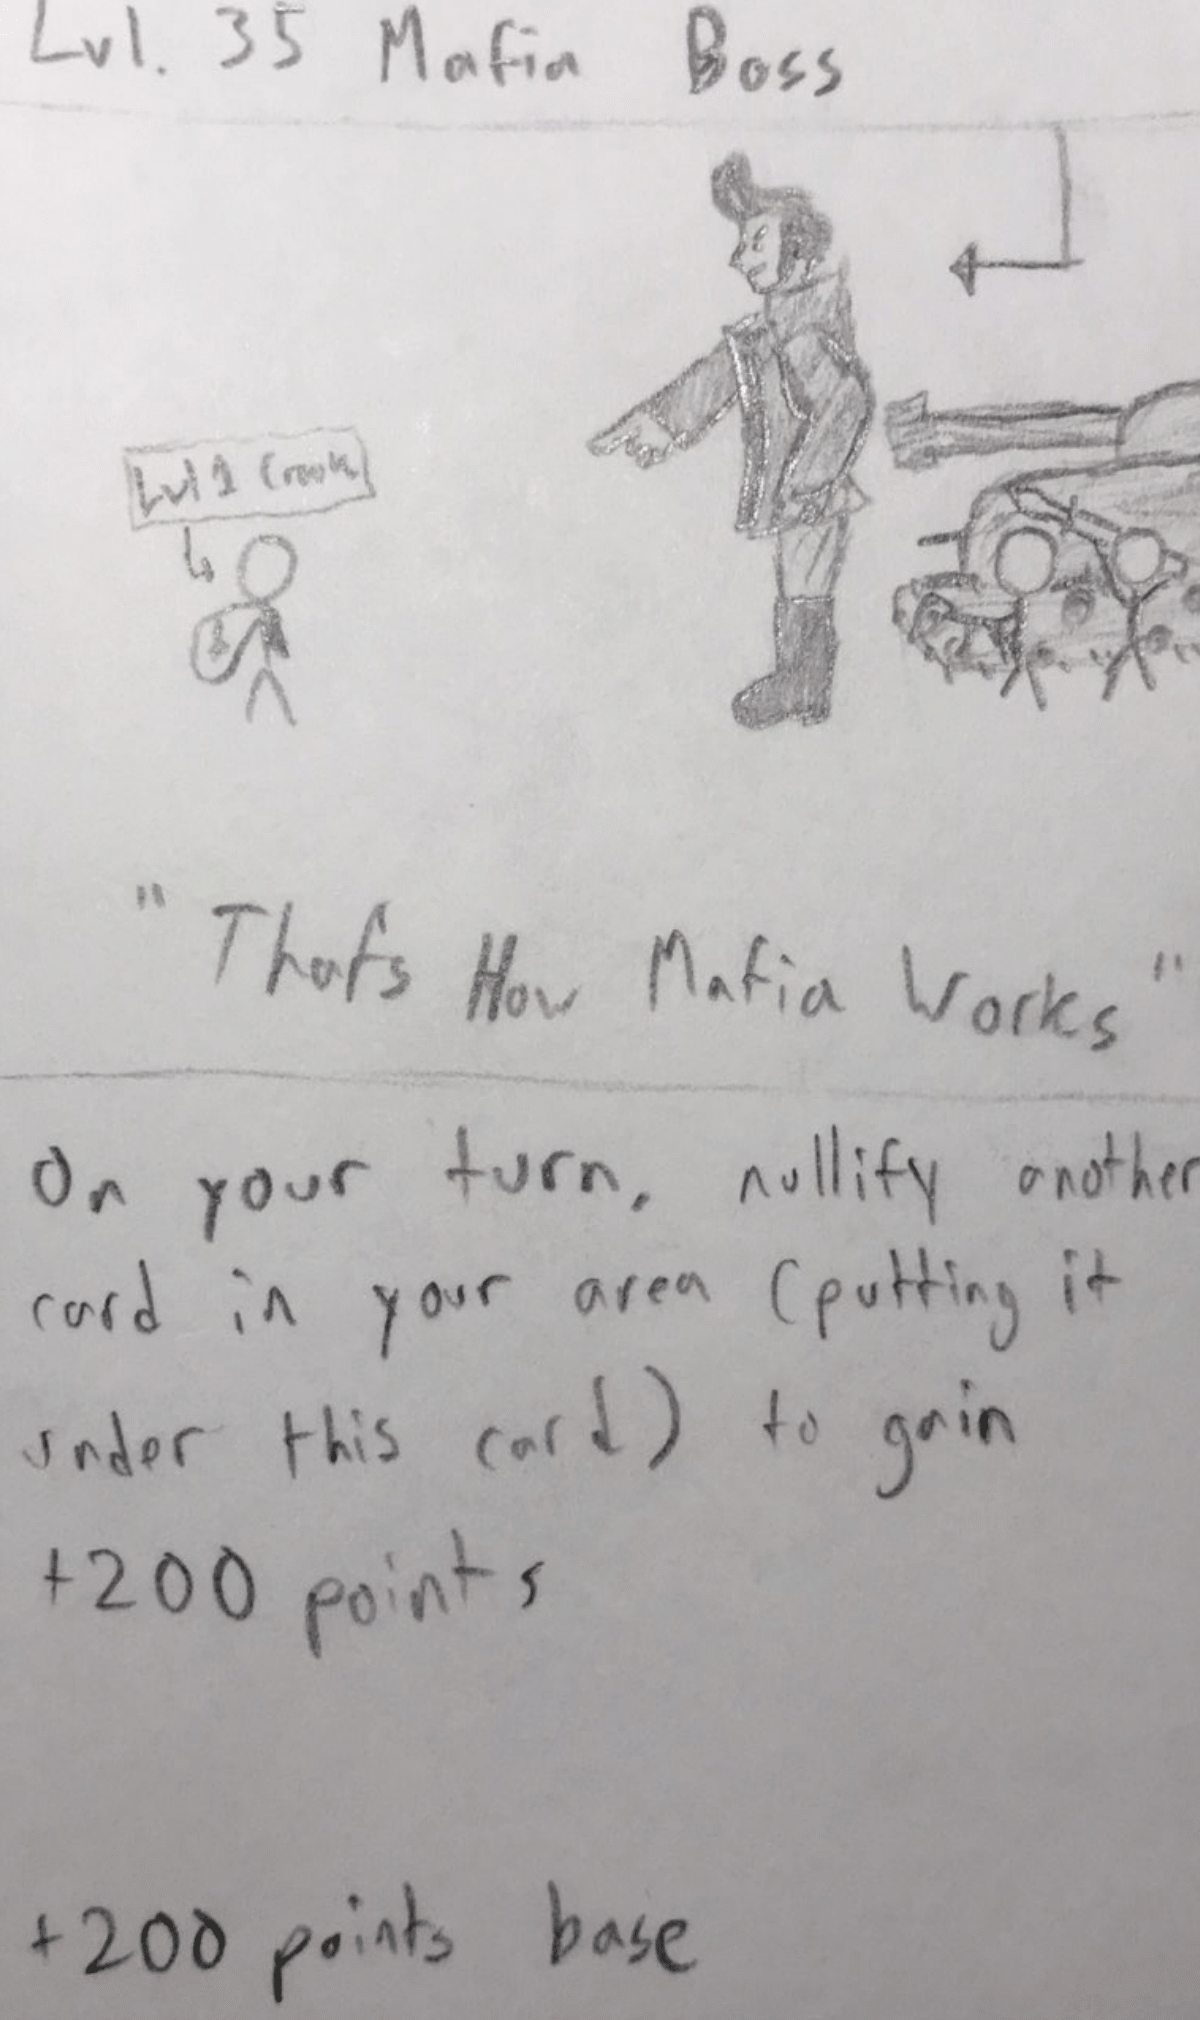 Lvl. 35 Mafia Boss
Lvl 1 Crook
"That's How Mafia Works"
On your turn, nullify another
card in your area (putting it
under this card) to gain
+200 points
+200 points base